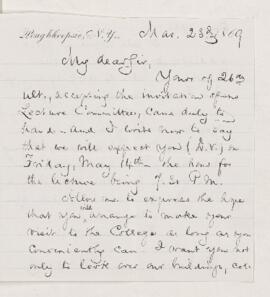 Poughkeepsie, N.Y., Mar. 23rd 1869
My dear Sir,
Yours of 26th
ult., accepting the invitation of our
Lecture Committee, came duly to
hand. And I write now to say
that we will expect you (D.V.) on
Friday, May 14th the hour for
the lecture being 7. P.M.
Allow me to express the hope
that you will arrange to make your
visit to the College as long as you
conveniently can. I want you not
only to look over our buildings, col-